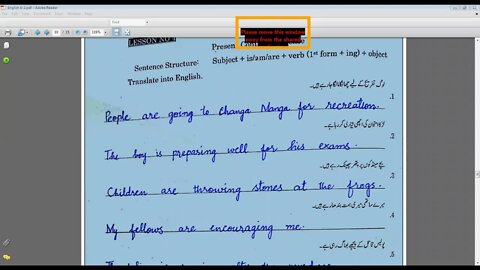 English 6-2.pdf - Adobe Reader
LESSON NO
Please move this window
away from the shared
Presen
Sentence Structure: Subject + is/am/are + verb (1st form + ing) + object
Translate into English.
لوگ تفریح کے لیے چھانگا مانگا جا رہے ہیں۔ .1
People are going to Changa Manga for recreation.
لڑکا امتحان کی اچھی تیاری کر رہا ہے۔ .2
The boy is preparing well for his exams.
بچے مینڈکوں پر پتھر پھینک رہے ہیں۔ .3
Children are throwing stones at the frogs.
میرے ساتھی میری ہمت بندھا رہے ہیں۔ .4
My fellows are encouraging me.
پولیس قاتل کے پیچھے بھاگ رہی ہے۔ .5